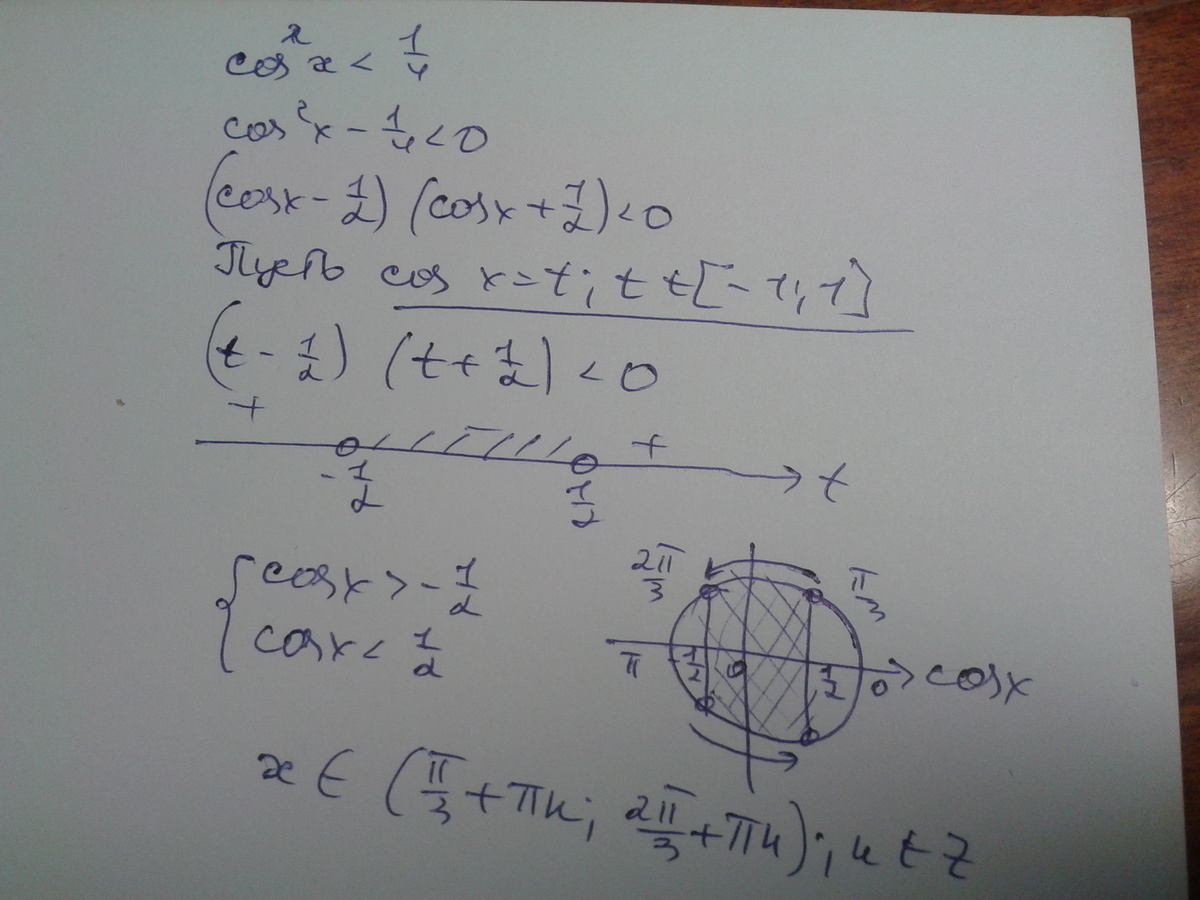 cos²x < 1/4
cos²x - 1/4 < 0
(cosx - 1/2) (cosx + 1/2) < 0
Пусть cos x = t; t ∈ [-1; 1]
(t - 1/2) (t + 1/2) < 0
+ - +
-1/2 1/2 t
{ cosx > -1/2
cosx < 1/2
2π/3 π/3
π -1/2 0 1/2 0 cosx
x ∈ (π/3 + πk; 2π/3 + πk); k ∈ Z